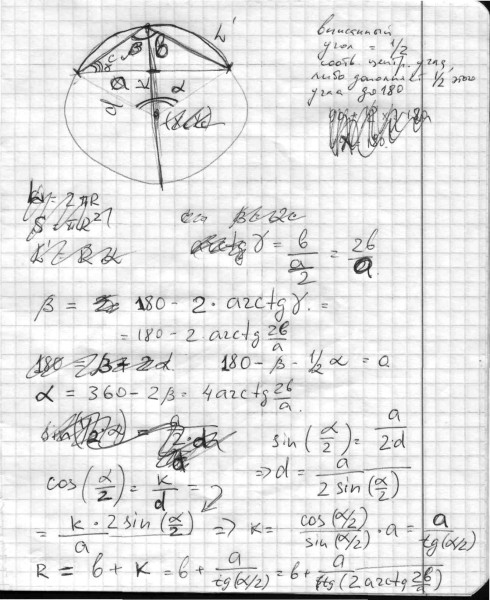 L'
β
b
c
γ
a
k
d
α
вписанный
угол = 1/2
соотв центр. угла,
либо дополняет 1/2 этого
угла до 180
L = 2πR
S = πR²
tg γ = b / (a/2) = 2b/a
β = 180 - 2 · arctg γ. =
= 180 - 2 arctg 2b/a
180 - β - 1/2 α = 0
α = 360 - 2β = 4 arctg 2b/a.
sin(α/2) = a/(2·d)
=> d = a/(2 sin(α/2))
cos(α/2) = k/d =
= k · 2 sin(α/2) / a => k = cos(α/2)/sin(α/2) · a = a/tg(α/2)
R = b + k = b + a/tg(α/2) = b + a/tg(2 arctg 2b/a)